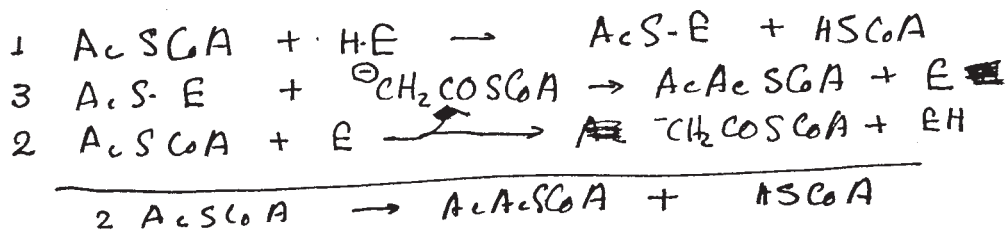 1 AcSCoA + H·E → AcS-E + HSCoA
3 AcS-E + ⊖CH₂COSCoA → AcAcSCoA + E
2 AcSCoA + E → ⁻CH₂COSCoA + EH
2 AcSCoA → AcAcSCoA + HSCoA